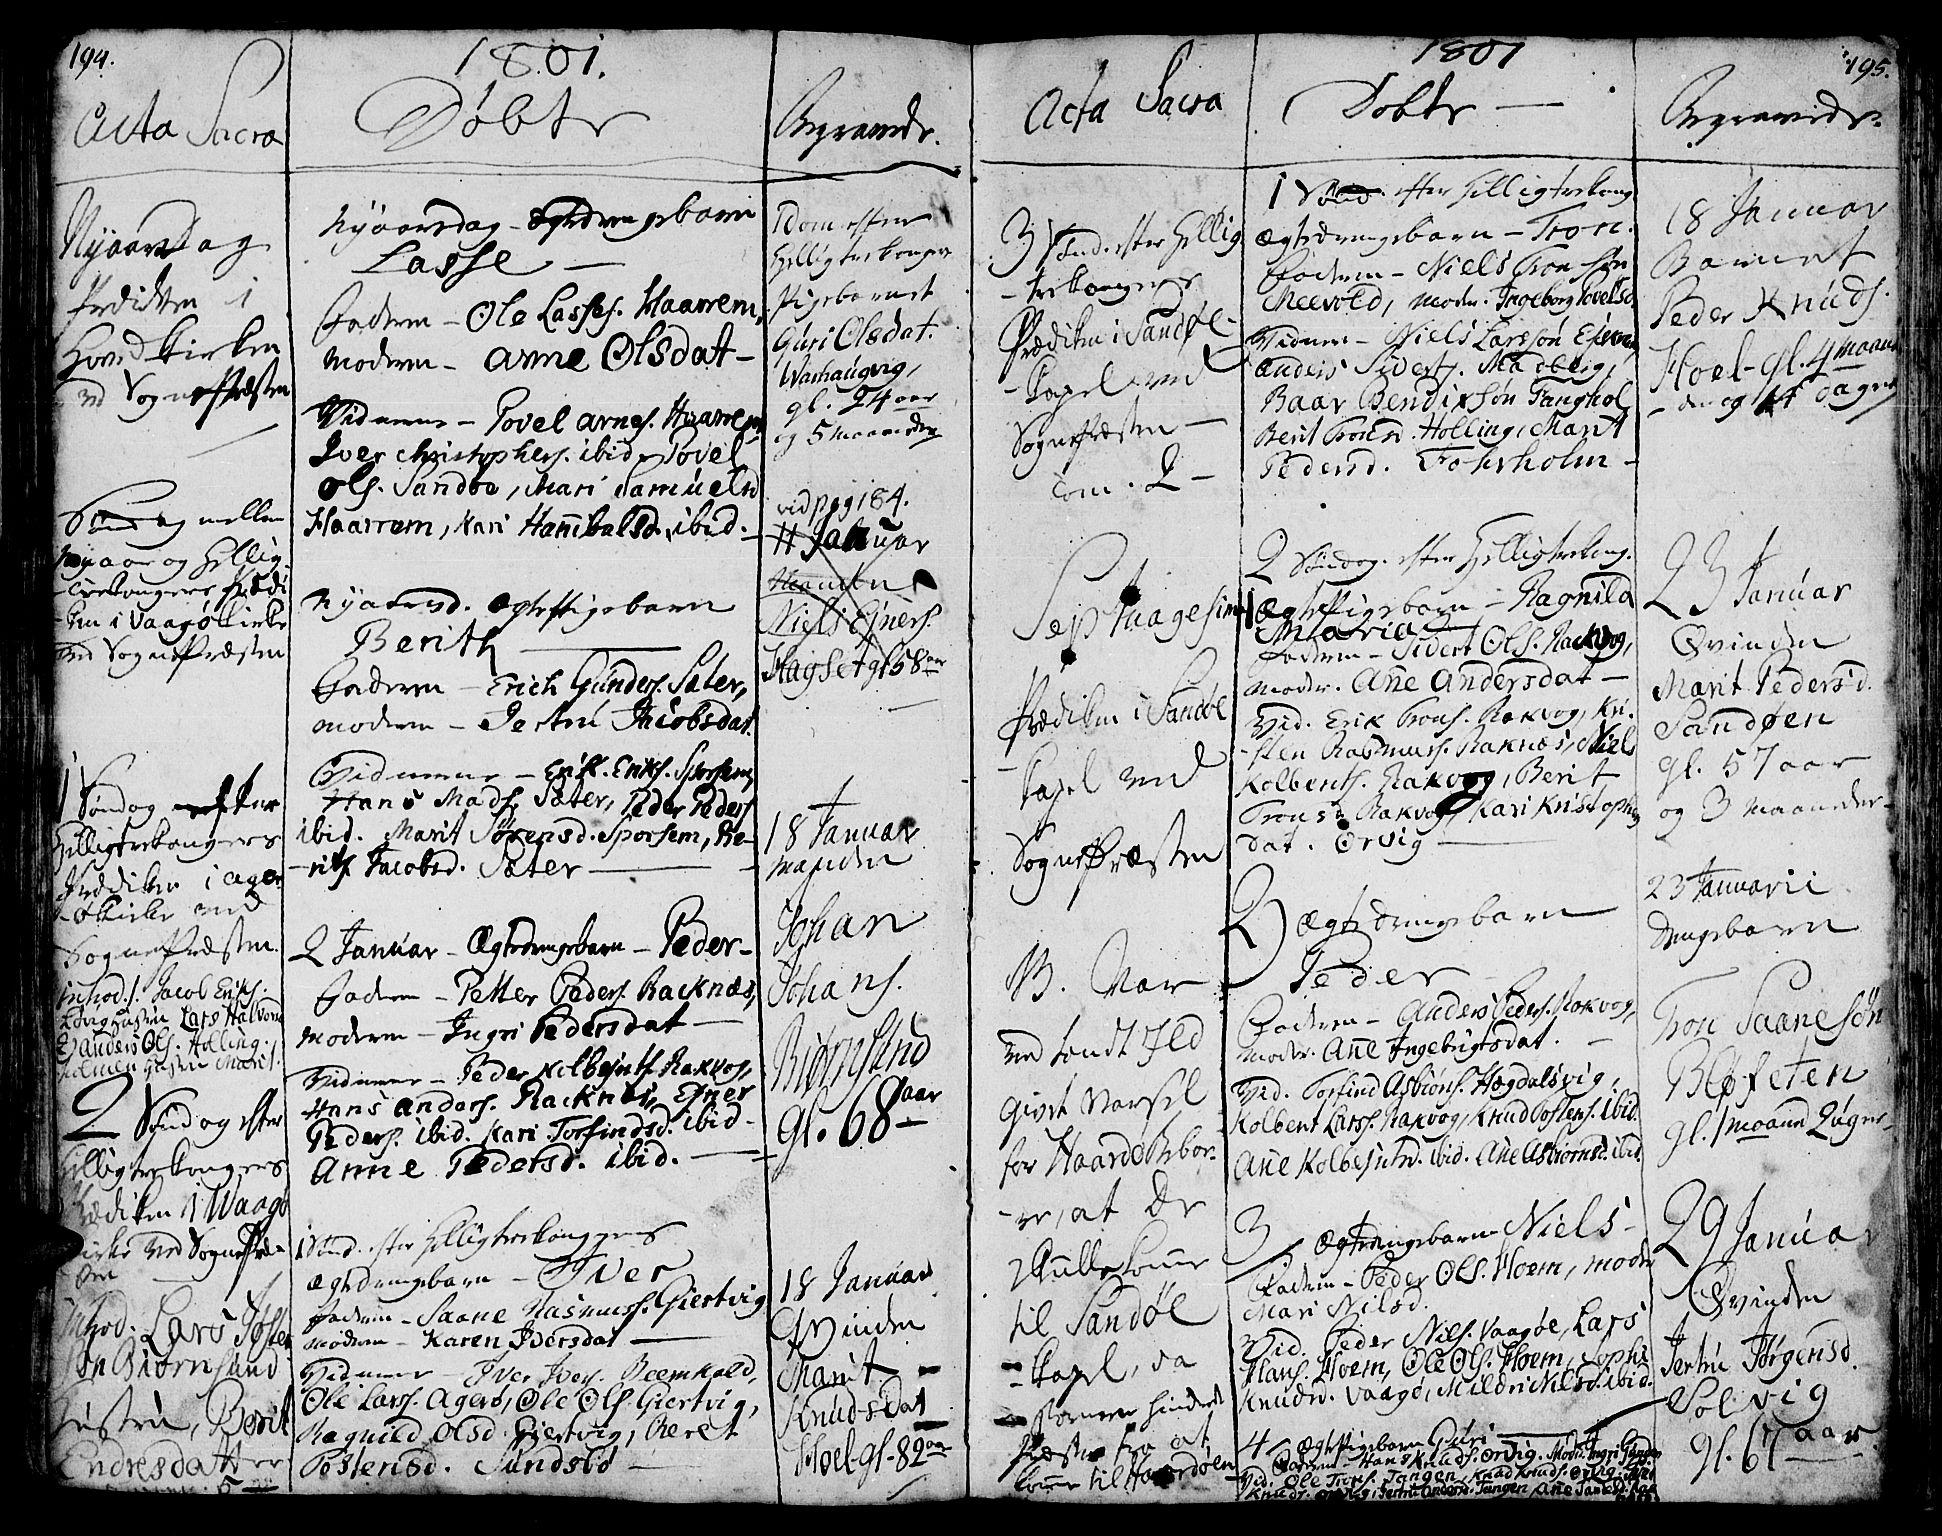 194.
1801.
Acta Sacra
Døbte
Begravede.
Nyaarsdag
Prædiken i
Hovedkirken
ved SognePræsten
Søndag mellem
Nyaar og Hellig-
trekongers Prædi
ken i Vaagø Kirke
ved SognePræsten
1 Søndag efter
Helligtrekongers
Prædiken i Ager
ø Kirke ved
SognePræsten.
Introd. s. Jacob Eriks.
Lars Halvors
Anders Ols. Holling.
2 Søndag efter
Helligtrekongers
Prædiken i Waagø
Kirke ved SognePræ-
sten
Introd. Lars Joste
søn Biørnsund
Hustru, Berit
Endresdatter
Nyaarsdag - Ægtedrengebarn
Lasse -
Faderen - Ole Lasses. Haarem,
Moderen - Anne Olsdatt -
Vidnerne - Povel Arnes. Haarem
Iver Christophers. ibid. Povel
Ols. Sandøe, Mari Samuelsd
Haarrem, Kari Hannibalsd. ibid. -
Nyaarsd. Ægtepigebarn
Berith
Faderen - Erich Gunders. Sater,
Moderen - Jertru Jacobsdat
Vidnerne - Erik. Eriks. Sporsem,
Hans Mads. Sater, Peder Peders
ibid. Marit Sørensd. Sporsem, Be-
rith Jacobsd. Sater -
2 Januar - Ægtedrengebarn - Peder -
Faderen - Petter Peders. Racknæs,
Moderen - Ingri Pedersdat -
Vidnerne - Peder Kolbejnts. Rakvog,
Hans Anders. Racknæs, Ejner
Peders. ibid. Kari Torfindsd. ibid -
Anne Pedersd. ibid. -
1 Sønd. efter Helligtrekongers
Ægtedrengebarn - Iver
Faderen - Saane Rasmuss. Giertvig
Moderen - Karen Iversdat -
Vidnerne - Iver Ivers. Reemkold,
Ole Larss. Agerø, Ole Ols. Giertvig,
Ragnild Olsd. Giertvig, Beret
Postensd. Sundsbø -
1 Dom. efter
Helligtrekongers
Pigebarnet
Guri Olsdat.
Warhaugvig,
gl. 24 aar
og 5 maaneder
vid pag 184.
11 Januar
Manden
Niels Ejners.
Hagset gl 58 aar
18 Januar
Manden
Johan
Johans.
Biørnsund
gl. 68 aar
18 Januar
Qvinden
Marit -
Knudsdat
Hoel - gl. 82 aar
1801
195.
Acta Sacra
Døbte -
Begravede.
3 Sønd. efter Hellig
- trekongers
Prædiken i Sandøe -
- Capel ved
SognePræsten -
Com. 2 -
Septuagesim
Prædiken i Sandøe
- Capel ved
SognePræsten
B. Var
ved tændt Ild
givet varsel
for Haarde Bbor.
- re, at De
skulle komme
til Sandøe
- Capel, da
stormen hindrede
Præsten fra at
komme til Haarøen
1 Sønd. efter Helligtrekong
Ægtedrengebarn - Tron.
Faderen - Niels Tronsøn
Meevold, moder. Ingeborg Povelsd
Vidner - Niels Larssøn
Anders Siverts. Madberg,
Baar Bendixsøn Tanghol
Berit Tronsd. Holling, Marit
Pedersd. Forsholm -
2 Søndag. efter Helligtrekong.
Ægtepigebarn - Ragnild
Maria
Faderen - Sivert Ols. Rackvog,
Moder. Ane Andersdat -
Vid. Erik Trons. Rakvog, Kri-
- sten Rasmuss. Raknæs, Niels
Kolbents. Rakvog, Berit
Tronsd. Rakvog, Kari Kristophers
dat. Orvig -
2) Ægtedrengebarn
Peder
Faderen - Anders Peders. Rakvog,
Moder. Ane Ingebrigtsdat. -
Vid. Torfind Asbiøns. Hægdalsvig.
Kolbent Larss. Rakvog, Knud Jostens. ibid.
Ane Kolbejntsd. ibid. Ane Asbiørnsd. ibid.
3 Ægtedrengebarn Niels -
Faderen - Peder Ols. Hoem, moder
Mari Nilsd.
Vid. Peder Nils. Vaagøe, Lars
Hans. Hoem, Ole Ols. Hoem, Sophi
Knudsd. Vaagø, Mildri Nilsd. ibid.
4 Ægtepigebarn Guri -
Faderen - Hans Knuds. Orvig. Moder. Ingri
Vid. Ole Trons. Tangen, Knud Knuds. Orvig,
Knuds. Orvig, Jertru Andersd. Tangen, Ane
18 Januar
Barnet
Peder Knuds.
Hoel - gl. 4 maane
- der og 14 dager
23 Januar
Qvinden
Marit Pedersd.
Sandøen
gl. 57 aar
og 3 maaneder -
23 Januarii
Drengebarn
Tron Saanesøn
Bløfeten
gl. 1 maaned 2 uger -
29 Januar
Qvinden
Jertru Jørgensd.
Solvig
gl. 67 aar.